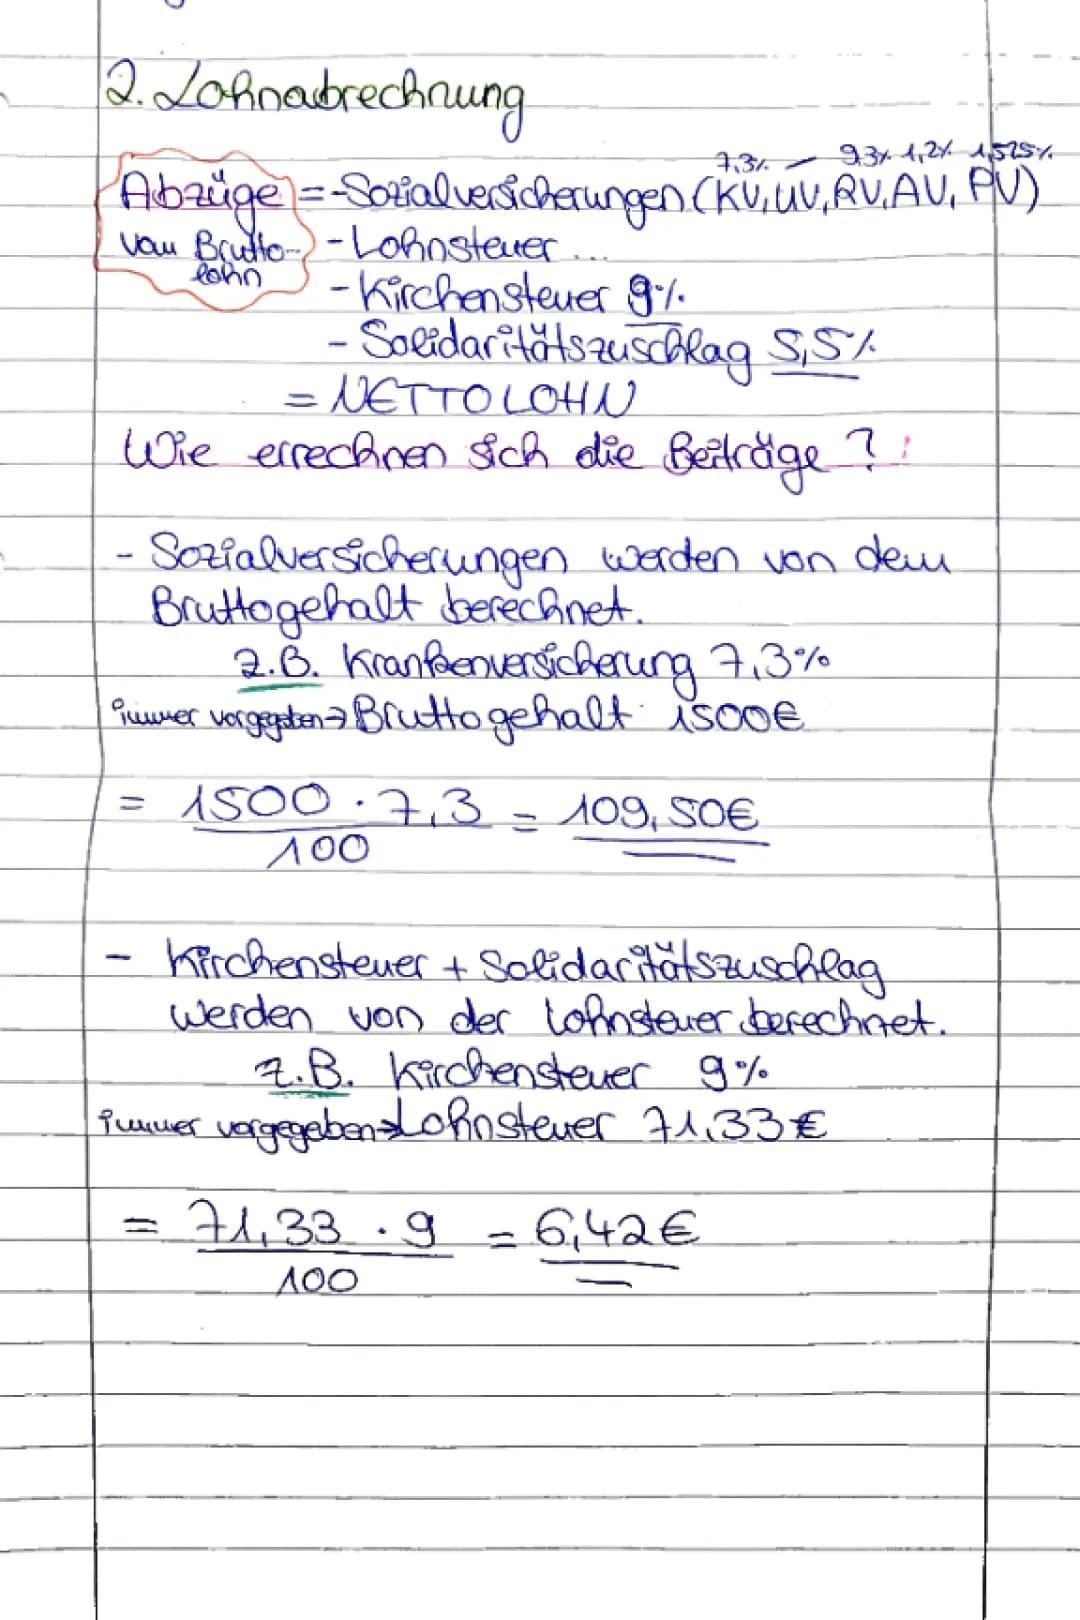 2. Lohnabrechnung
7,3% — 9,3% 1,2% 1,525%
Abzüge = - Sozialversicherungen (KV, UV, RV, AV, PV)
vom Brutto- - Lohnsteuer ...
lohn
- Kirchensteuer 9%
- Solidaritätszuschlag 5,5%
= NETTOLOHN
Wie errechnen sich die Beiträge?!
- Sozialversicherungen werden von dem
Bruttogehalt berechnet.
z.B. Krankenversicherung 7,3%
immer vorgegeben → Bruttogehalt 1500€
= 1500 · 7,3 = 109,50€
100
- Kirchensteuer + Solidaritätszuschlag
werden von der Lohnsteuer berechnet.
z.B. Kirchensteuer 9%
immer vorgegeben → Lohnsteuer 71,33€
= 71,33 · 9 = 6,42€
100